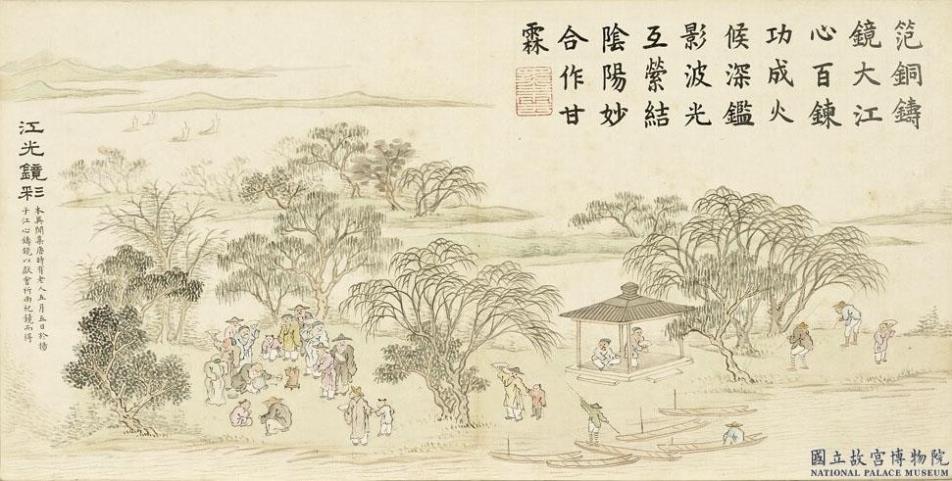 笵銅鑄
鏡大江
心百鍊
功成火
候深鑑
影波光
互縈結
陰陽妙
合作甘
霖
江光鏡彩
本異聞集唐時有老人五月五日於揚
子江心鑄鏡以獻會祈雨祀鏡而得
國立故宮博物院
NATIONAL PALACE MUSEUM